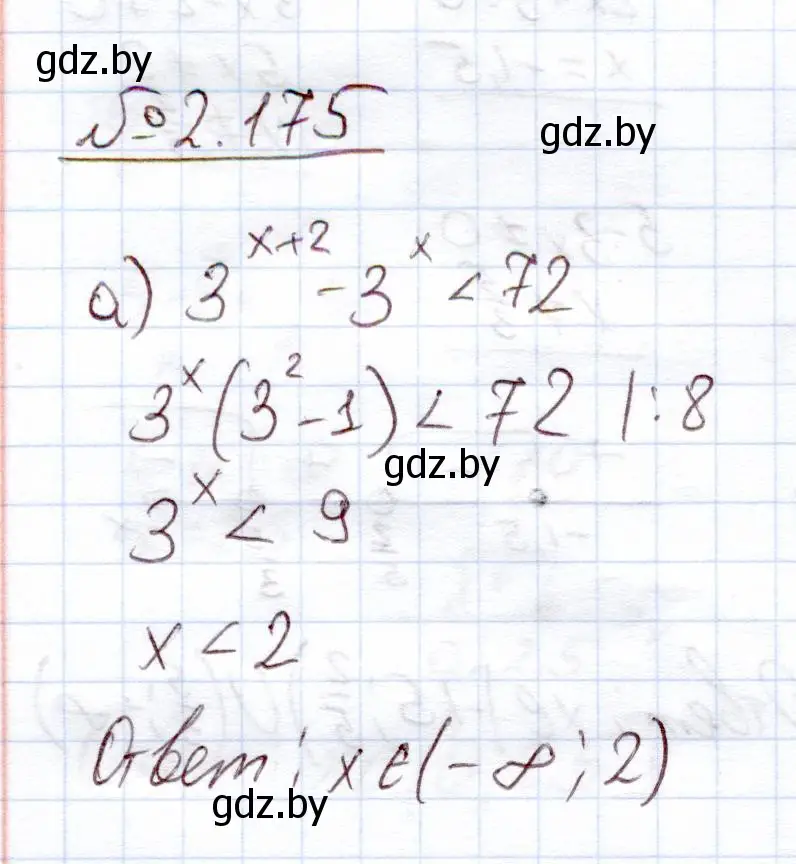 gdz.by
№ 2.175
gdz.by
а) 3^{x+2} - 3^x < 72
3^x (3^2 - 1) < 72 |: 8
gdz.by
3^x < 9
x < 2
Ответ: x ∈ (-∞; 2)
gdz.by